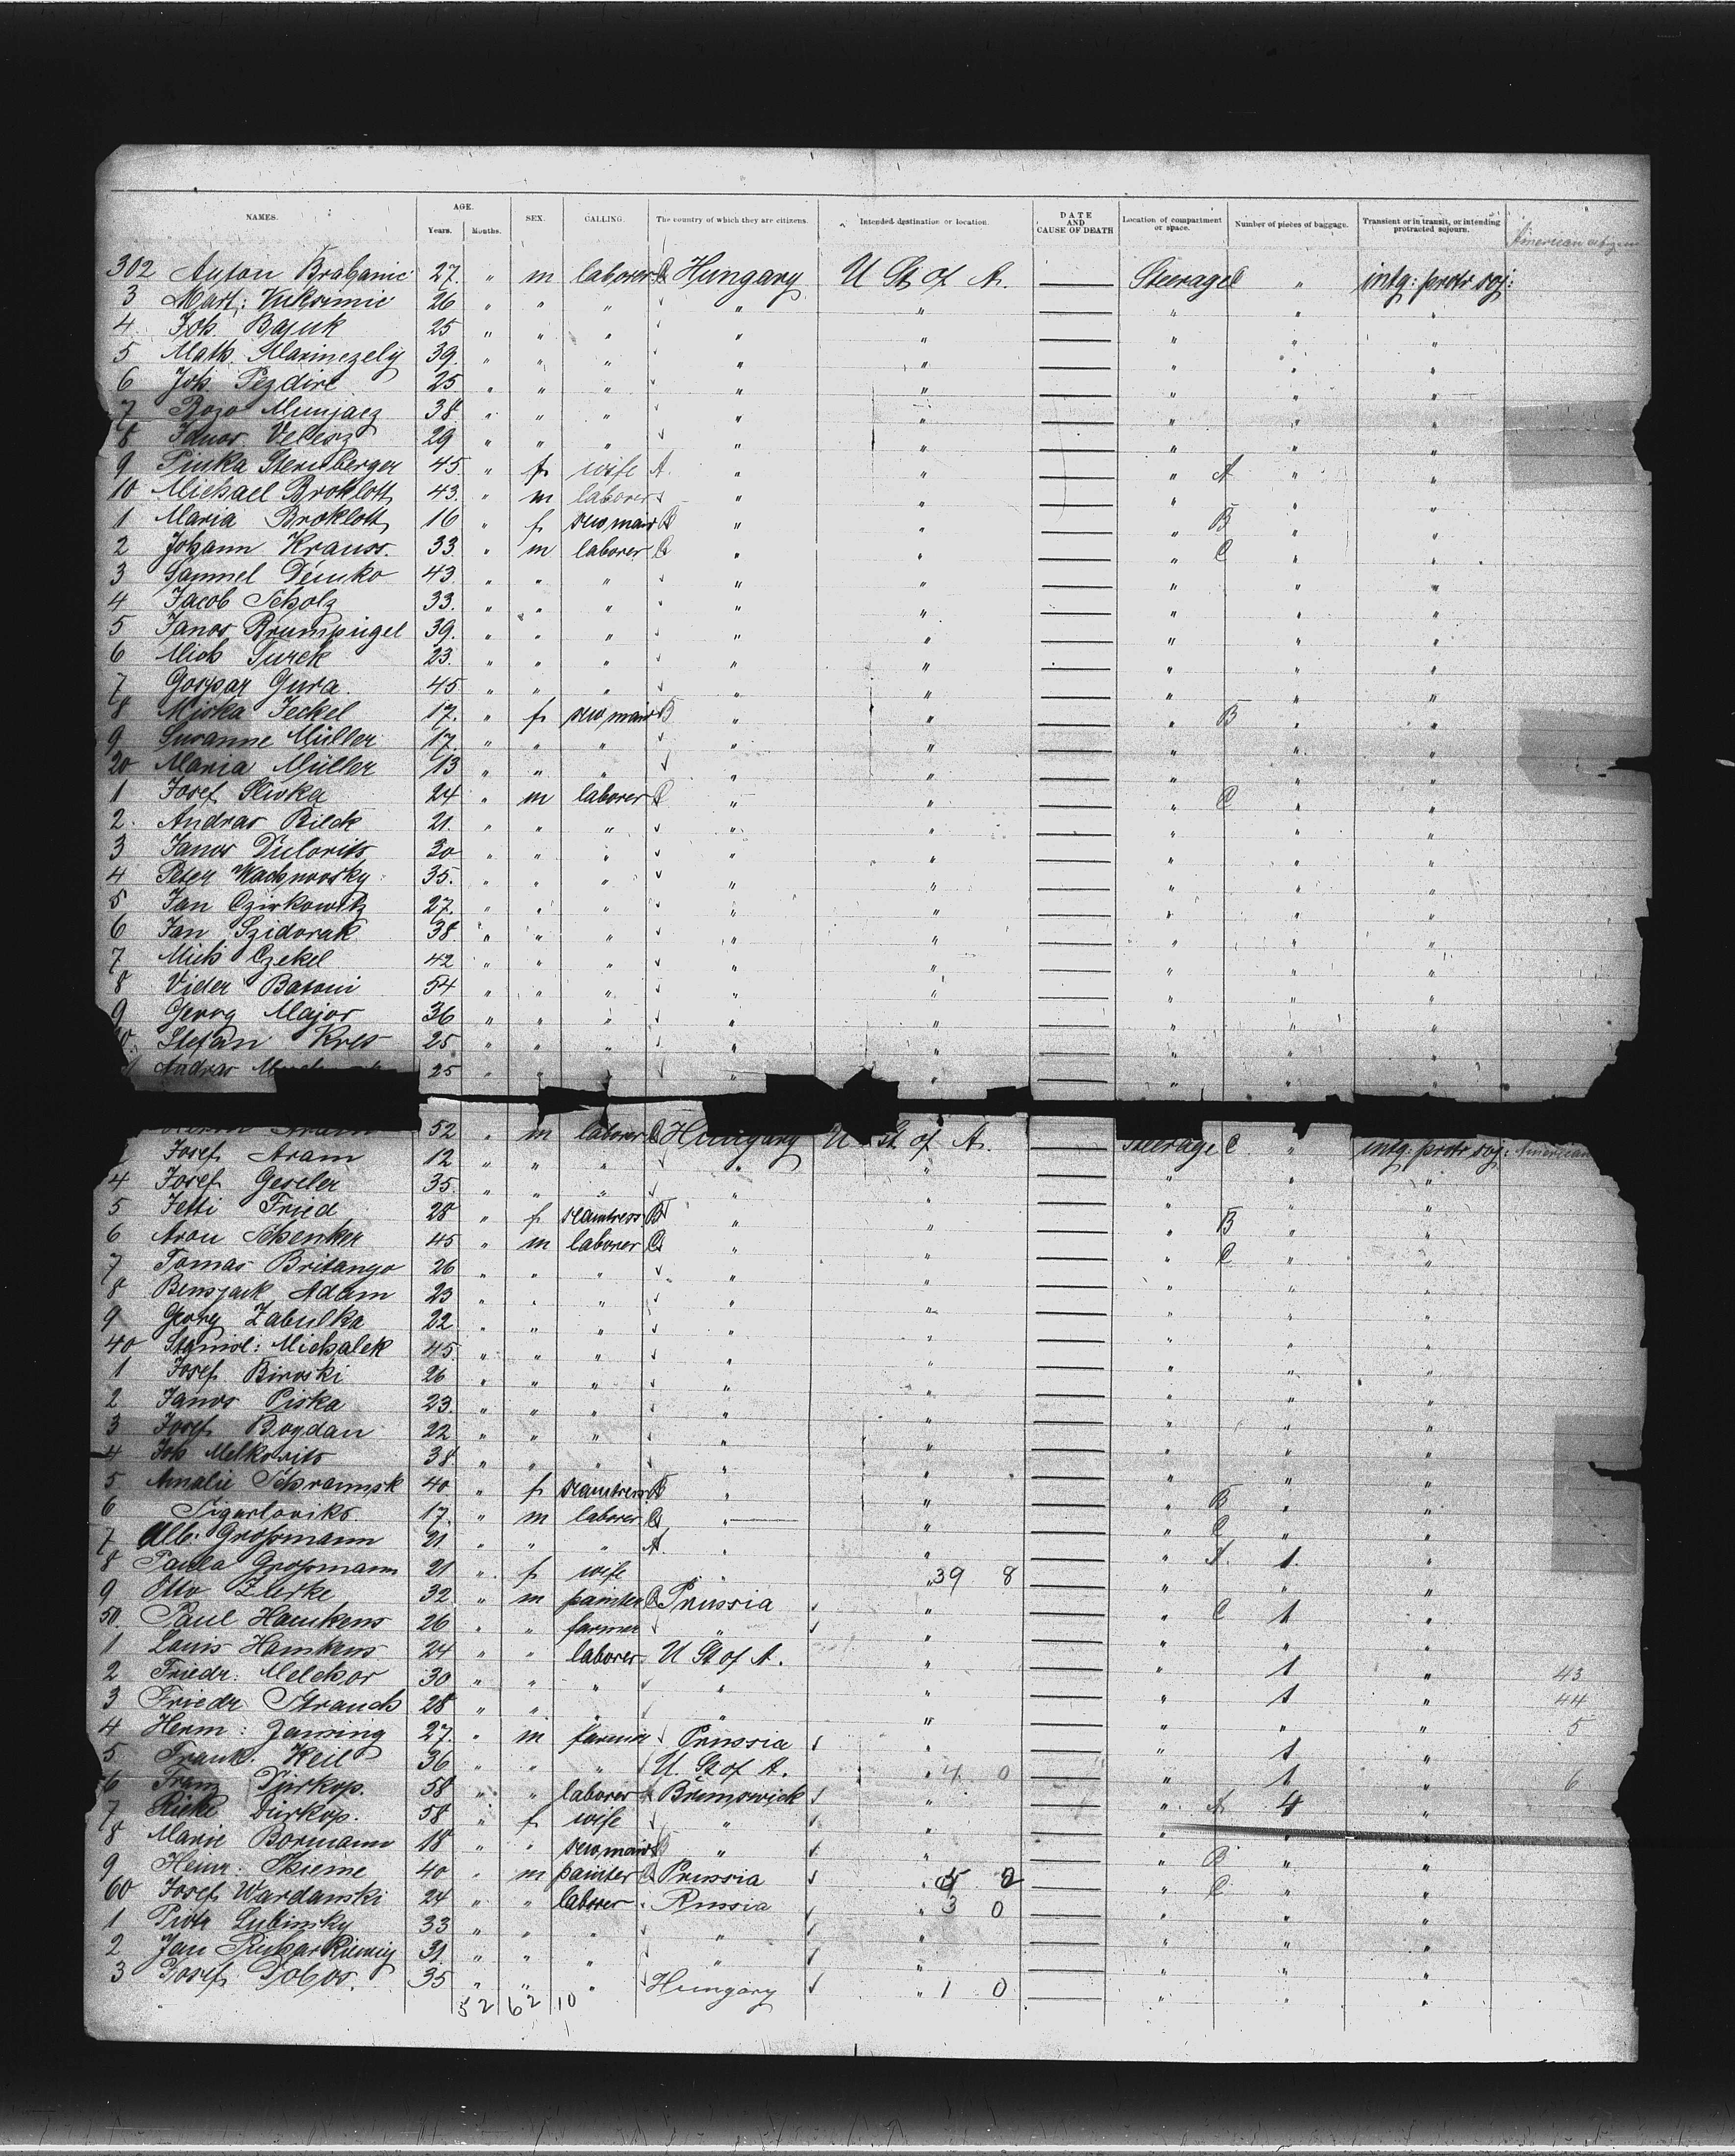 NAMES. AGE. Years. Months. SEX. CALLING. The country of which they are citizens. Intended destination or location. DATE AND CAUSE OF DEATH Location of compartment or space. Number of pieces of baggage. Transient or in transit, or intending protracted sojourn. American citizen
302 Anton Brabanic 27. " m laborer C Hungary U St of A. Steerage C " intg: protr soj:
3 Mart: Vuksinic 26 " " " " " " " "
4. Joh. Bajuk 25 " " " " " " " "
5 Math. 39. " " " " " " " "
6 Joh. Pezdirc 25 " " " " " " " "
7 Bozo Munjacz 38 " " " " " " " "
8 Janos Velesz 29 " " " " " " " "
9 Pinka Sternberger 45. " f wife A. " " " A " "
10 Michael Broklott 43. " m laborer " " " " "
1 Maria Broklott 16 " f serv maid B " " " B " "
2 Johann Krauss. 33. " m laborer C " " " C " "
3 Samuel Demko 43. " " " " " " " "
4 Jacob Scholz 33. " " " " " " " "
5 Janos Brumpugel 39. " " " " " " " "
6 Mich Turek 23. " " " " " " " "
7 Gospar Gura. 45 " " " " " " " "
8 Miska Jeckel 17. " f serv maid B " " " B " "
9 Susanne Müller 17. " " " " " " " "
20 Maria Müller 13 " " " " " " " "
1 Josef Slivka 24 " m laborer C " " " C " "
2. Andras Bilek 21. " " " " " " " "
3 Janos 30 " " " " " " " "
4 Peter 35. " " " " " " " "
5 Jan Czirkowitz 27. " " " " " " " "
6 Jan Szidorak 38. " " " " " " " "
7 Mich Czekel 42 " " " " " " " "
8 Vider Batoni 54 " " " " " " " "
9 Georg Major 36 " " " " " " " "
Stefan Kres 25 " " " " " " " "
Andras 25 " " " " " " " "
Aram 52 " m laborer C Hungary U St of A. Steerage C " intg: protr soj: American
Josef Aram 12 " " " " " " " "
4 Josef Geseler 35. " " " " " " " "
5 Jetti Fried 28 " f seamtress B " " " B " "
6 Aron Schenker 45 " m laborer C " " " C " "
7 Tomas Britango 26 " " " " " " " "
8 Bensjack Adam 23 " " " " " " " "
9 Georg Zabulka 22 " " " " " " " "
40 Stanisl: Michalek 45. " " " " " " " "
1 Josef Biroski 26 " " " " " " " "
2 Janos Piska 23. " " " " " " " "
3 Josef Bogdan 22 " " " " " " " "
4 Joh Melkovits 38 " " " " " " " "
5 Amalie Schramsk 40 " f seamtress B " " " B " "
6 17. " m laborer C " " " C " "
7 Alb. Großmann 21 " " " A. " " " A. 1 "
8 Paula Großmann 21 " f wife " " 39 8 " " "
9 Otto 32 " m painter C Prussia " " C 1 "
50. Paul Hamkens 26 " " farmer " " " " "
1 Louis Hamkens 24 " " laborer U St of A. " " 1 " 43
2 Friedr: Melchor 30 " " " " " " 1 " 44
3 Friedr Strauch 28 " " " " " " " " 5
4 Herm: Janssing 27. " m farmer Prussia " " 1 "
5 Frank. Keil 36 " " " U. St of A. " 4 0 " 1 " 6
6 Franz Dürkop. 58 " " laborer A Brunswick " " A 4 "
7 Rieke Dürkop. 58 " f wife " " " " "
8 Marie Bormann 18 " " serv maid B " " " B " "
9 Heinr: Thieme 40 " m painter C Prussia " 5 2 " C " "
60 Josef Wardanski 24 " " laborer Russia " 3 0 " " "
1 Piotr Lubinsky 33 " " " " " " " "
2 Jan 31. " " " " " " " "
3 Josef Dobos. 35 " " " Hungary " 1 0 " " "
52 62 10